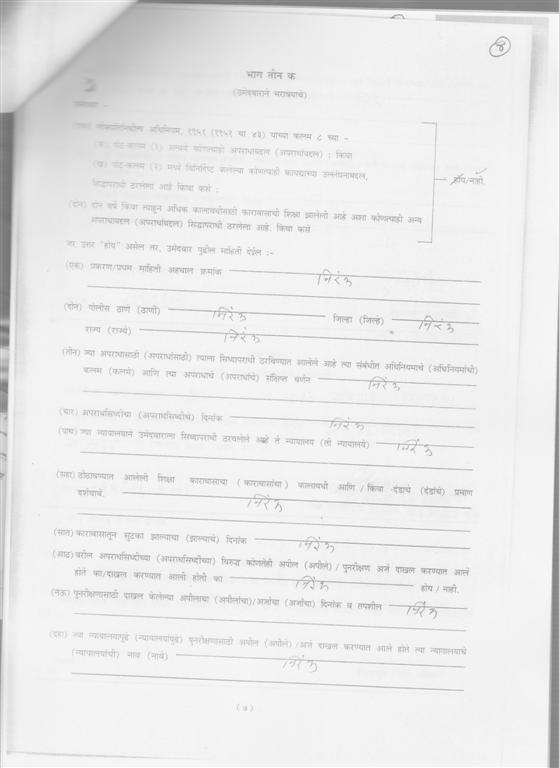 ४
भाग तीन क
(उमेदवाराने भरावयाचे)
उमेदवार -
(एक) लोकप्रतिनिधीत्व अधिनियम, १९५१ (१९५१ चा ४३) याच्या कलम ८ च्या -
(क) पोट-कलम (१) अन्वये कोणत्याही अपराधाबद्दल (अपराधांबद्दल) : किंवा
(ख) पोट-कलम (२) मध्ये विनिर्दिष्ट केलेल्या कोणत्याही कायद्याच्या उल्लंघनाबद्दल,
सिद्धापराधी ठरलेला आहे किंवा कसे :
होय/नाही.
(दोन) दोन वर्षे किंवा त्याहून अधिक कालावधीसाठी कारावासाची शिक्षा झालेली आहे अशा कोणत्याही अन्य
अपराधाबद्दल (अपराधांबद्दल) सिद्धापराधी ठरलेला आहे. किंवा कसे
जर उत्तर "होय" असेल तर, उमेदवार पुढील माहिती देईल :-
(एक) प्रकरण/प्रथम माहिती अहवाल क्रमांक निरंक
(दोन) पोलीस ठाणे (ठाणी) निरंक जिल्हा (जिल्हे) निरंक
राज्य (राज्ये) निरंक
(तीन) ज्या अपराधासाठी (अपराधांसाठी) त्याला सिध्दापराधी ठरविण्यात आलेले आहे त्या संबंधीत अधिनियमाचे (अधिनियमांची)
कलम (कलमे) आणि त्या अपराधाचे (अपराधांचे) संक्षिप्त वर्णन निरंक
(चार) अपराधसिध्दीचा (अपराधसिध्दीचे) दिनांक निरंक
(पाच) ज्या न्यायालयाने उमेदवाराला सिध्दापराधी ठरवलेले आहे ते न्यायालय (ती न्यायालये) निरंक
(सहा) ठोठावण्यात आलेली शिक्षा कारावासाचा (कारावासांचा) कालावधी आणि / किंवा दंडाचे (दंडांचे) प्रमाण
दर्शवावे. निरंक
(सात) कारावासातून सुटका झाल्याचा (झाल्याचे) दिनांक निरंक
(आठ) वरील अपराधसिध्दीच्या (अपराधसिध्दींच्या) विरुद्ध कोणतेही अपील (अपीले) / पुनरीक्षण अर्ज दाखल करण्यात आले
होते का/दाखल करण्यात आली होती का निरंक होय / नाही.
(नऊ) पुनरीक्षणासाठी दाखल केलेल्या अपीलाचा (अपीलांचा)/अर्जाचा (अर्जांचा) दिनांक व तपशील निरंक
(दहा) ज्या न्यायालयापुढे (न्यायालयांपुढे) पुनरीक्षणासाठी अपील (अपीले) /अर्ज दाखल करण्यात आले होते त्या न्यायालयाचे
(न्यायालयांची) नाव (नावे) निरंक
(७)